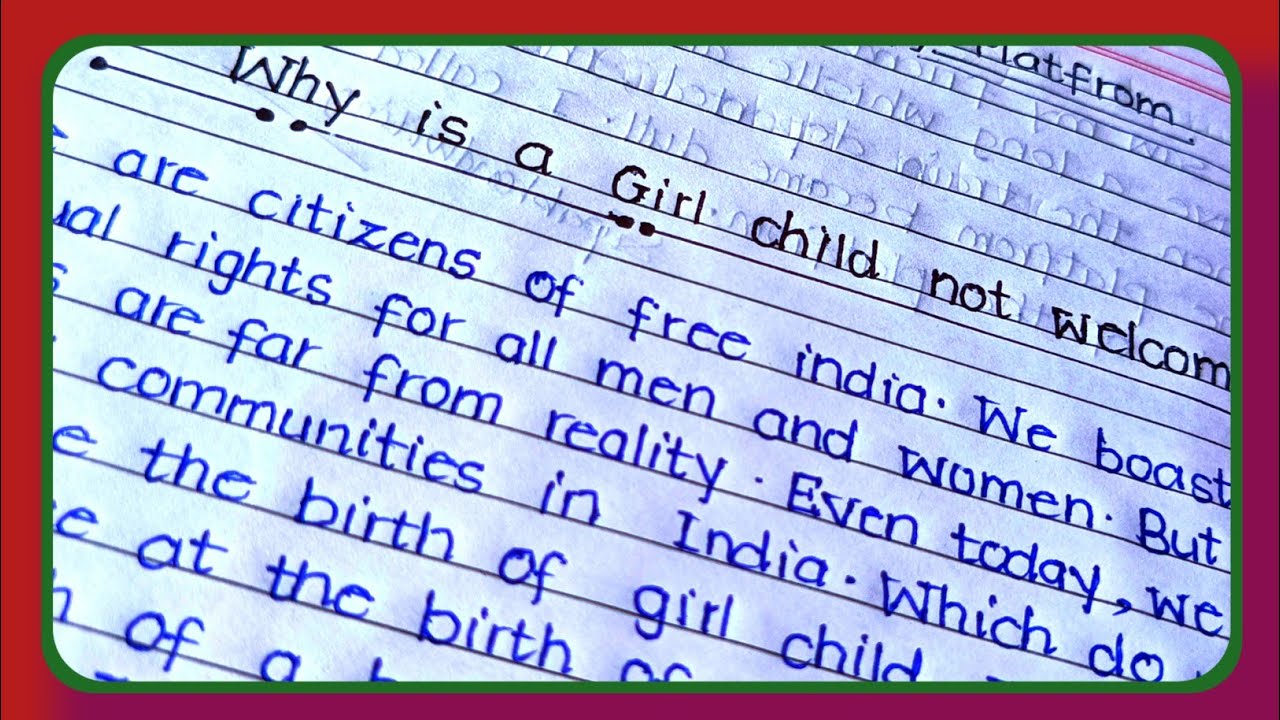 Platfrom.
Why is a Girl child not welcom
are citizens of free india. We boast
ual rights for all men and women. But
s are far from reality. Even today, we
communities in India. Which do
e the birth of girl child
e at the birth of
h of a